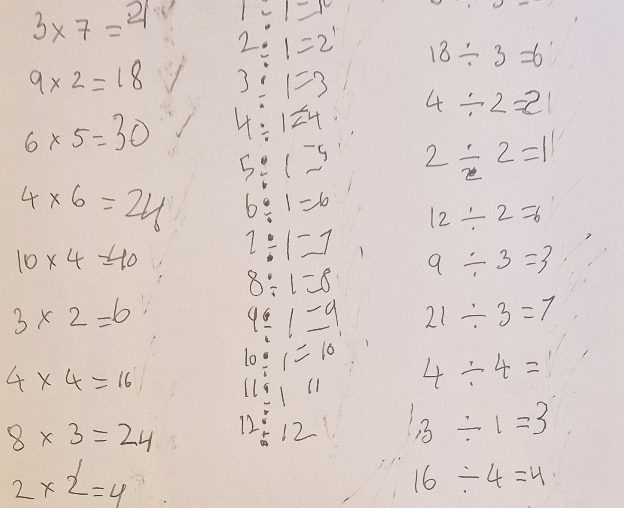 3 × 7 = 21
9 × 2 = 18
6 × 5 = 30
4 × 6 = 24
10 × 4 = 40
3 × 2 = 6
4 × 4 = 16
8 × 3 = 24
2 × 2 = 4
2 ÷ 1 = 2
3 ÷ 1 = 3
4 ÷ 1 = 4
5 ÷ 1 = 5
6 ÷ 1 = 6
7 ÷ 1 = 7
8 ÷ 1 = 8
9 ÷ 1 = 9
10 ÷ 1 = 10
11 ÷ 1 11
12 ÷ 12
18 ÷ 3 = 6
4 ÷ 2 = 2
2 ÷ 2 = 1
12 ÷ 2 = 6
9 ÷ 3 = 3
21 ÷ 3 = 7
4 ÷ 4 =
3 ÷ 1 = 3
16 ÷ 4 = 4